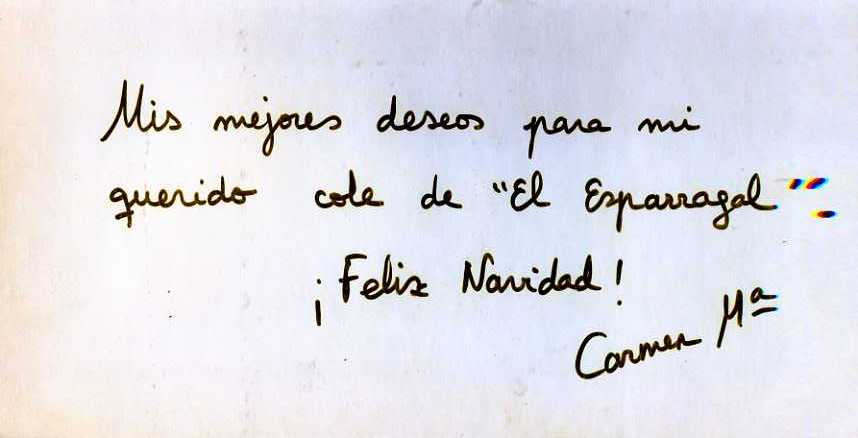 Mis mejores deseos para mi
querido cole de "El Esparragal"
¡Feliz Navidad!
Carmen Mª